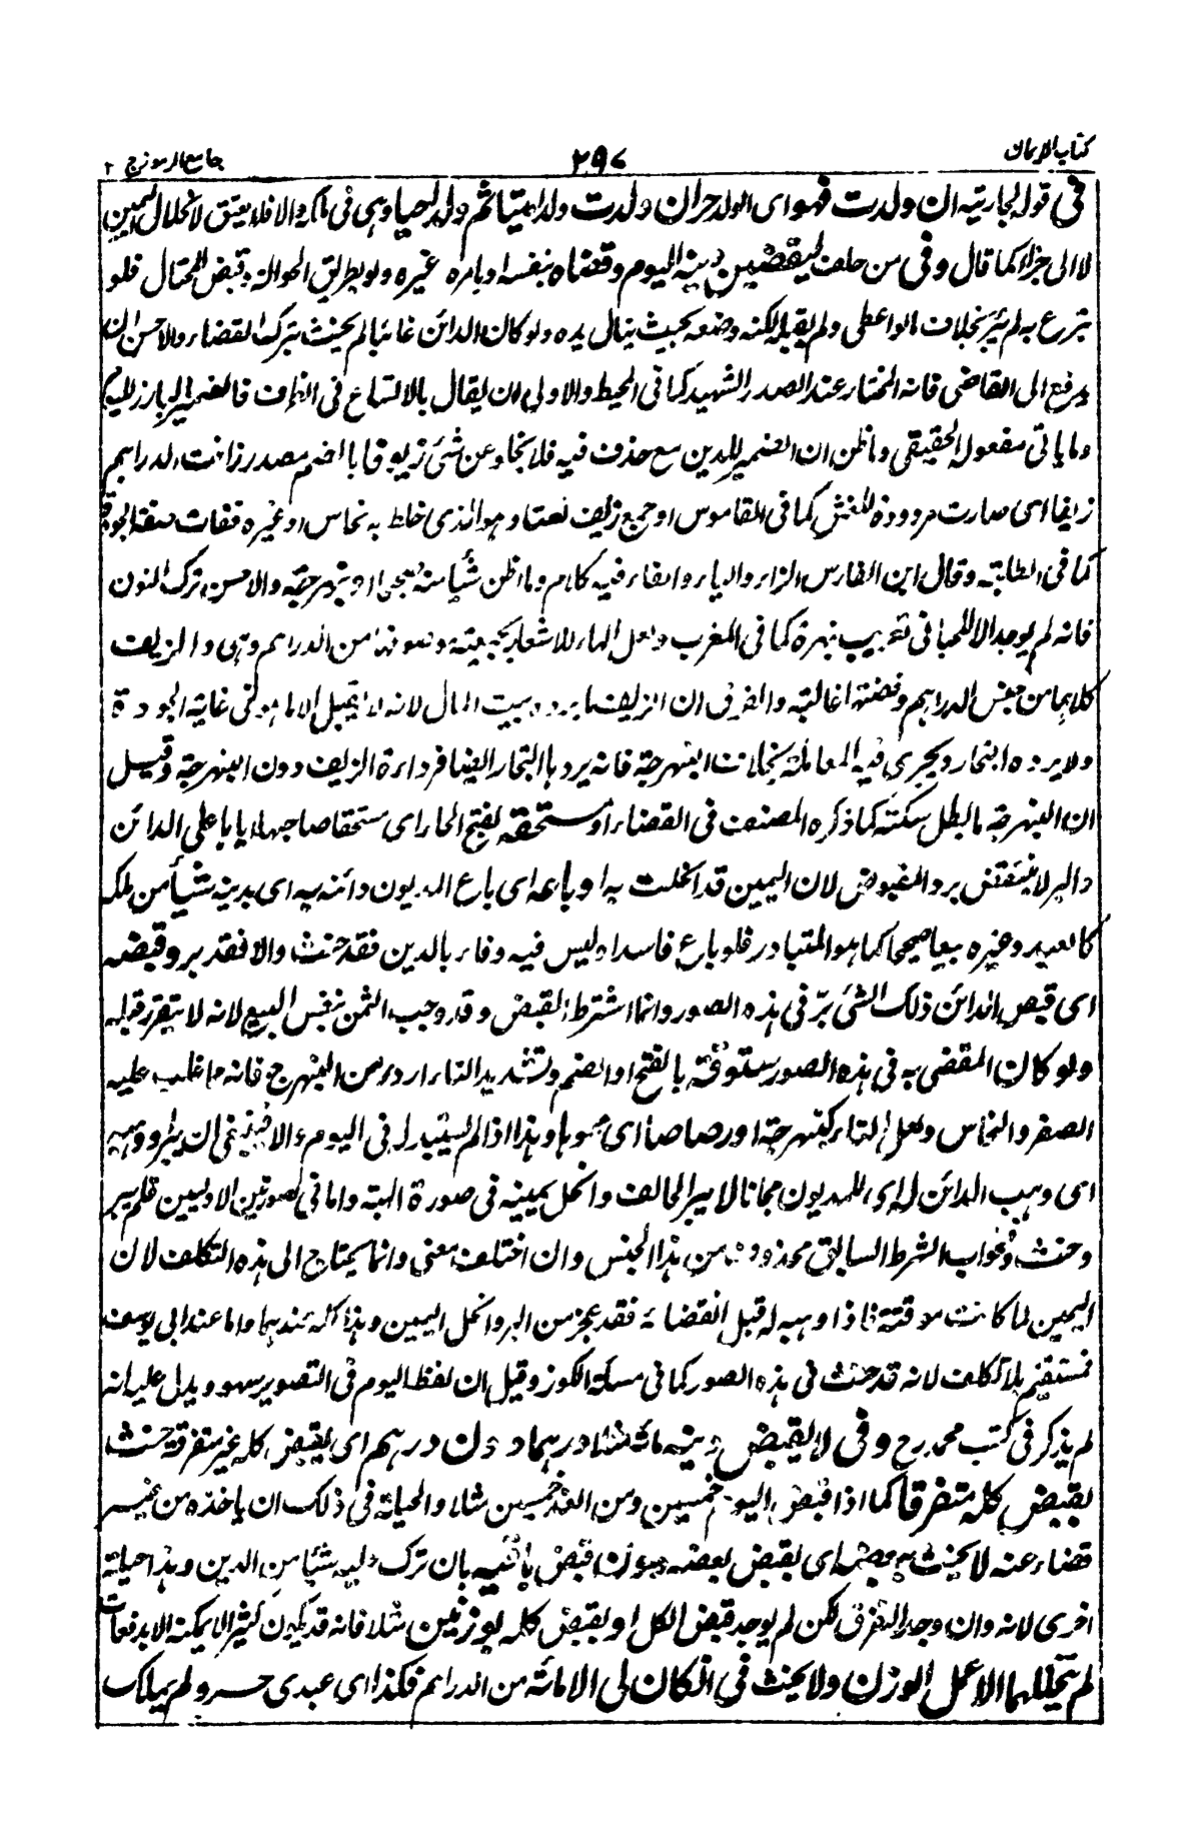 كتاب الايمان ٢٩٧ جامع الرموز ج ٢
في قوله لجاريته ان ولدت فهو اى الولد حر ان ولدت ولدا ميتا ثم ولدا حيا وهى فى ملكه والا فلا يعتق لانحلال اليمين
لا الى جزاء كما قال وفى من حلف ليقضين دينه اليوم وقضاه بنفسه او بامره غيره ولو بطريق الحوالة وقبض المحتال فلو
تبرع به لم يبر بخلاف ما لو اعطى ولم يقبل لكنه وضعه بحيث ينال يده ولو كان الدائن غائبا لم يحنث بترك القضاء والاحسن ان
يرفع الى القاضى فانه المختار عند الصدر الشهيد كما فى المحيط والاولى ان يقال بالاتساع فى الظرف فالضمير البارز لليوم
وما ياتى مفعوله الحقيقى واظن ان الضمير للدين مع حذف فيه فلا يخلو عن شئ زيوفا بالضم مصدر زافت الدراهم
زيفا اى صارت مردودة للغش كما فى القاموس او جمع زيف نعتا وهو الذى خلط به نحاس او غيره ففات صفة الجودة
كما فى الطلبة وقال ابن الفارس الزاء والياء والفاء فيه كلام وما اظن شيأ منه صحيحا او نبهرجة والاحسن ترك النون
فانه لم يوجد الا اللحيا فى تعريب نبهرة كما فى المغرب ولعل الهاء للاشعار بجمعية موصوفها من الدراهم وهى والزيف
كلاهما من جنس الدراهم وفضتها غالبة والفرق ان الزيف ما يرده بيت المال لانه لا يقبل الا ما هو فى غاية الجودة
ولا يرده التجار ويجرى فيه المعاملة بخلاف النبهرجة فانه يردها التجار ايضا فرداءة الزيف دون النبهرجة وقيل
ان النبهرجة ما بطل سكته كما ذكره المصنف فى القضاء او مستحقة بفتح الحاء اى مستحقا صاحبها اياها على الدائن
والبر لا ينتقض برد المقبوض لان اليمين قد انحلت به او باعه اى باع المديون دائنه به اى بدينه شيأ من ملكه
كالعبد وغيره بيعا صحيحا كما هو المتبادر فلو باع فاسدا وليس فيه وفاء بالدين فقد حنث والا فقد بر وقبضه
اى قبض الدائن ذلك الشئ بر فى هذه الصور وانما اشترط القبض وقد وجب الثمن بنفس البيع لانه لا يتقرر قبله
ولو كان المقضى به فى هذه الصور ستوقة بالفتح او الضم وتشديد التاء اردء من النبهرج فانه ما غلب عليه
الصفر والنحاس ولعل التاء كنبهرجة او رصاصا اى مموها وهذا اذا لم يستبدل فى اليوم والا فينبغى ان يبر او وهبه
اى وهب الدائن له اى للمديون مجانا لا يبر الحالف وانحل يمينه فى صورة الهبة واما فى الصورتين الاوليين فلم يبر
وحنث فجواب الشرط السابق محذوف من هذا الجنس وان اختلف معنى وانما يحتاج الى هذه التكلف لان
اليمين لما كانت موقتة فاذا وهبه له قبل انقضائه فقد عجز من البر وانحل اليمين وهذا كله عندهما واما عند ابى يوسف
فمستقيم بلا تكلف لانه قد حنث فى هذه الصور كما فى مسئلة الكوز وقيل ان لفظ اليوم فى التصوير سهو ويدل عليه انه
لم يذكر فى كتب محمد رح وفى لا يقبض دينه مائة مثلا درهما دون درهم اى يقبض كله غير متفرقة حنث
بقبض كله متفرقا كما اذا قبض اليوم خمسين ومن الغد خمسين مثلا والحيلة فى ذلك ان ياخذه من غيره
قضاء عنه لا يحنث ببعضه اى بقبض بعضه بدون قبض باقيه بان ترك عليه شيأ من الدين وهذا حيلة
اخرى لانه وان وجد التفرق لكن لم يوجد قبض الكل او بقبض كله بوزنين مثلا فانه قد يكون كثيرا لا يمكنه الا بدفعات
لم يتخللهما الا عمل الوزن ولا يحنث فى ان كان لى الا مائة من الدراهم فكذا اى عبدى حر ولم يملك